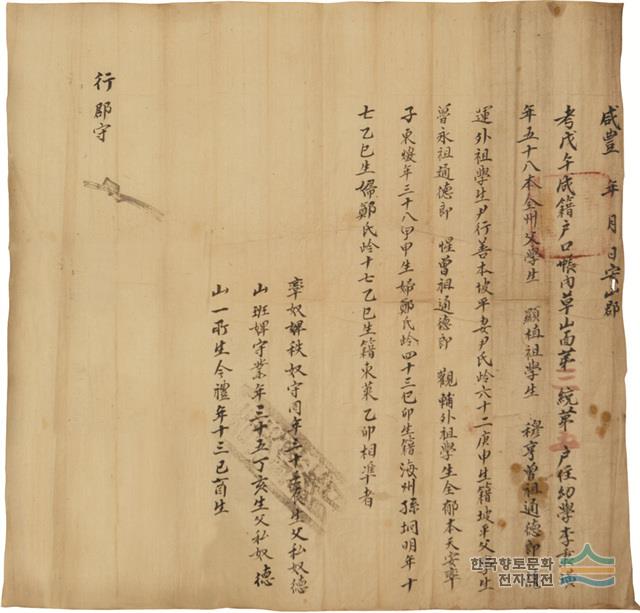 咸豊 年 月 日安山郡
考戊午成籍户口帳內草山面第二統第五户住幼學李
年五十八本全州父學生 顯植祖學生 穆亨曾祖通德郎
運外祖學生尹行善本坡平妻尹氏岭六十二庚申生籍坡平父學生
曾永祖通德郎 惺曽祖通德郎 觀輔外祖學生全郁本天安率
子東燮年三十八甲申生婦鄭氏岭四十三己卯生籍海州孫垌明年十
七乙巳生婦鄭氏岭十七乙巳生籍東萊乙卯相準者
率奴婢秩奴守同年三十 生父私奴德
山班婢守業年三十五丁亥生父私奴德
山一所生今禮年十三己酉生
行郡守
한국향토문화
전자대전